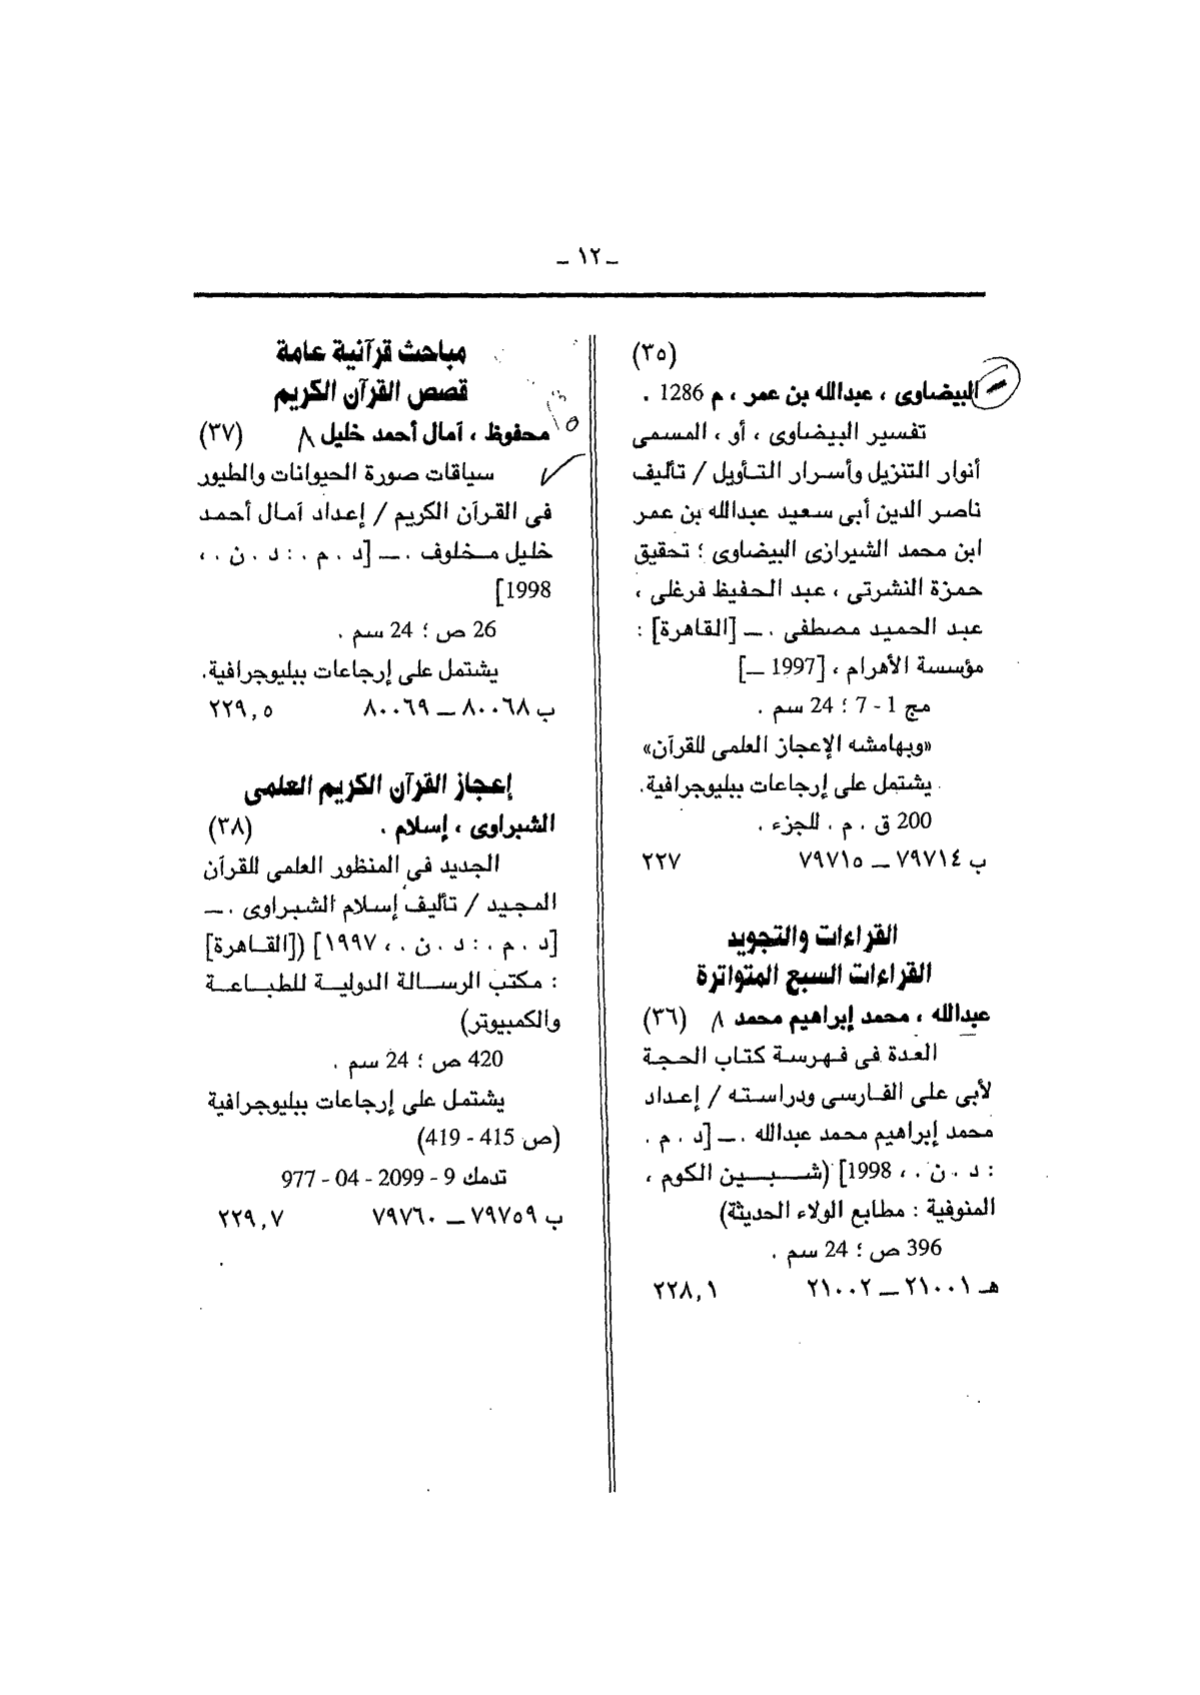 ـ ١٢ ـ
(٣٥)
البيضاوى ، عبدالله بن عمر ، م 1286 .
تفسير البيضاوى ، أو ، المسمى
أنوار التنزيل وأسرار التأويل / تأليف
ناصر الدين أبى سعيد عبدالله بن عمر
ابن محمد الشيرازى البيضاوى ؛ تحقيق
حمزة النشرتى ، عبد الحفيظ فرغلى ،
عبد الحميد مصطفى . ـ [القاهرة] :
مؤسسة الأهرام ، [1997 ـ]
مج 1 - 7 ؛ 24 سم .
«وبهامشه الإعجاز العلمى للقرآن»
يشتمل على إرجاعات ببليوجرافية.
200 ق . م . للجزء .
ب ٧٩٧١٤ ـ ٧٩٧١٥ ٢٢٧
القراءات والتجويد
القراءات السبع المتواترة
عبدالله ، محمد إبراهيم محمد (٣٦)
العدة فى فهرسة كتاب الحجة
لأبى على الفارسى ودراسته / إعداد
محمد إبراهيم محمد عبدالله . ـ [د . م .
: د . ن . ، 1998] (شبين الكوم ،
المنوفية : مطابع الولاء الحديثة)
396 ص ؛ 24 سم .
هـ ٢١٠٠١ ـ ٢١٠٠٢ ٢٢٨,١
مباحث قرآنية عامة
قصص القرآن الكريم
محفوظ ، آمال أحمد خليل (٣٧)
سياقات صورة الحيوانات والطيور
فى القرآن الكريم / إعداد آمال أحمد
خليل مخلوف . ـ [د . م . : د . ن . ،
1998]
26 ص ؛ 24 سم .
يشتمل على إرجاعات ببليوجرافية.
ب ٨٠٠٦٨ ـ ٨٠٠٦٩ ٢٢٩,٥
إعجاز القرآن الكريم العلمى
الشبراوى ، إسلام . (٣٨)
الجديد فى المنظور العلمى للقرآن
المجيد / تأليف إسلام الشبراوى . ـ
[د . م . : د . ن . ، ١٩٩٧] ([القاهرة]
: مكتب الرسالة الدولية للطباعة
والكمبيوتر)
420 ص ؛ 24 سم .
يشتمل على إرجاعات ببليوجرافية
(ص 415 - 419)
تدمك 9 - 2099 - 04 - 977
ب ٧٩٧٥٩ ـ ٧٩٧٦٠ ٢٢٩,٧